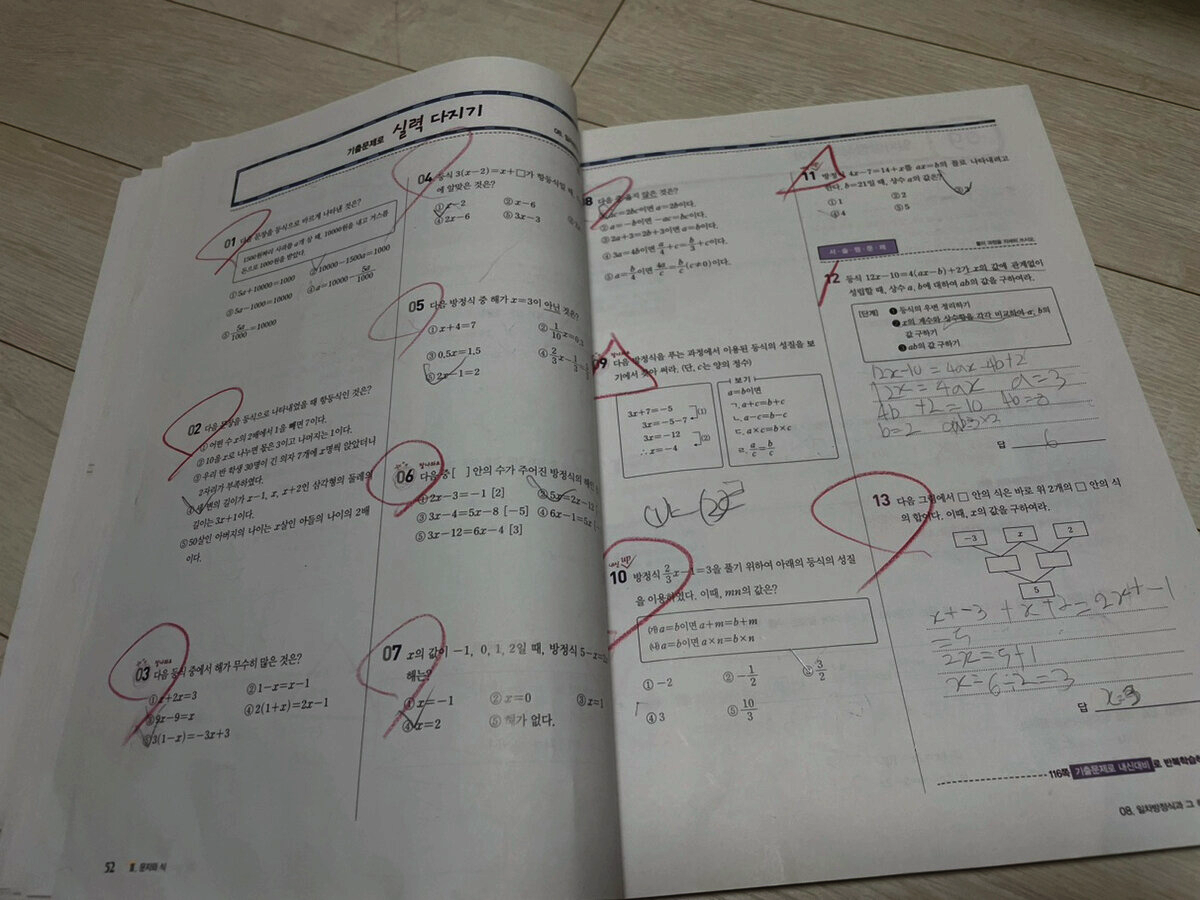 기출문제로 실력 다지기
01 다음 문장을 등식으로 바르게 나타낸 것은?
1500원짜리 사과를 a개 살 때, 10000원을 내고 거스름
돈으로 1000원을 받았다.
① 5a+10000=1000
② 10000-1500a=1000
③ 5a-1000=10000
④ a=10000-5a/1000
⑤ 5a/1000=10000
02 다음 문장을 등식으로 나타내었을 때 항등식인 것은?
① 어떤 수 x의 2배에서 1을 빼면 7이다.
② 10을 x로 나누면 몫은 3이고 나머지는 1이다.
③ 우리 반 학생 30명이 긴 의자 7개에 x명씩 앉았더니
2자리가 부족하였다.
④ 세 변의 길이가 x-1, x, x+2인 삼각형의 둘레의
길이는 3x+1이다.
⑤ 50살인 아버지의 나이는 x살인 아들의 나이의 2배
이다.
03 다음 등식 중에서 해가 무수히 많은 것은?
① x+2x=3
② 1-x=x-1
③ 9x-9=x
④ 2(1+x)=2x-1
⑤ 3(1-x)=-3x+3
52 Ⅱ. 문자와 식
04 등식 3(x-2)=x+□가 항등식일 때,
에 알맞은 것은?
① x-2
② x-6
④ 2x-6
⑤ 3x-3
05 다음 방정식 중 해가 x=3이 아닌 것은?
① x+4=7
② 1/10x=0.3
③ 0.5x=1.5
④ 2/3x-1/3=
⑤ 2x-1=2
06 다음 중 [ ] 안의 수가 주어진 방정식의 해인
① 2x-3=-1 [2]
② 5x=2x-12
③ 3x-4=5x-8 [-5]
④ 6x-1=5x
⑤ 3x-12=6x-4 [3]
07 x의 값이 -1, 0, 1, 2일 때, 방정식 5-x=
해는?
① x=-1
② x=0
③ x=1
④ x=2
⑤ 해가 없다.
8 다음 중 옳지 않은 것은?
① ac=2bc이면 a=2b이다.
② a=-b이면 -ac=bc이다.
③ 2a+3=2b+3이면 a=b이다.
④ 3a=4b이면 a/4+c=b/3+c이다.
⑤ a=b/4이면 4a/c=b/c(c≠0)이다.
09 다음 방정식을 푸는 과정에서 이용된 등식의 성질을 보
기에서 찾아 써라. (단, c는 양의 정수)
3x+7=-5
3x=-5-7 (1)
3x=-12
∴ x=-4 (2)
보기
a=b이면
ㄱ. a+c=b+c
ㄴ. a-c=b-c
ㄷ. a×c=b×c
ㄹ. a/c=b/c
(1)= (2)=
내신 UP
10 방정식 2/3x-1=3을 풀기 위하여 아래의 등식의 성질
을 이용하였다. 이때, mn의 값은?
㈎ a=b이면 a+m=b+m
㈏ a=b이면 a×n=b×n
① -2
② -1/2
③ 3/2
④ 3
⑤ 10/3
11 방정식 4x-7=14+x를 ax=b의 꼴로 나타내려고
한다. b=21일 때, 상수 a의 값은?
① 1
② 2
③ 3
④ 4
⑤ 5
서·술·형·문·제
풀이 과정을 자세히 쓰시오.
12 등식 12x-10=4(ax-b)+2가 x의 값에 관계없이
성립할 때, 상수 a, b에 대하여 ab의 값을 구하여라.
[단계] ❶ 등식의 우변 정리하기
❷ x의 계수와 상수항을 각각 비교하여 a, b의
값 구하기
❸ ab의 값 구하기
12x-10=4ax-4b+2
12x=4ax a=3
4b +2=10 4b=8
b=2
답 6
13 다음 그림에서 □ 안의 식은 바로 위 2개의 □ 안의 식
의 합이다. 이때, x의 값을 구하여라.
-3 x 2
5
x+-3 +x+2=2x+-1
=5
2x=5+1
x=6÷2=3
답 x=3
116쪽 기출문제로 내신대비로 반복학습
08. 일차방정식과 그